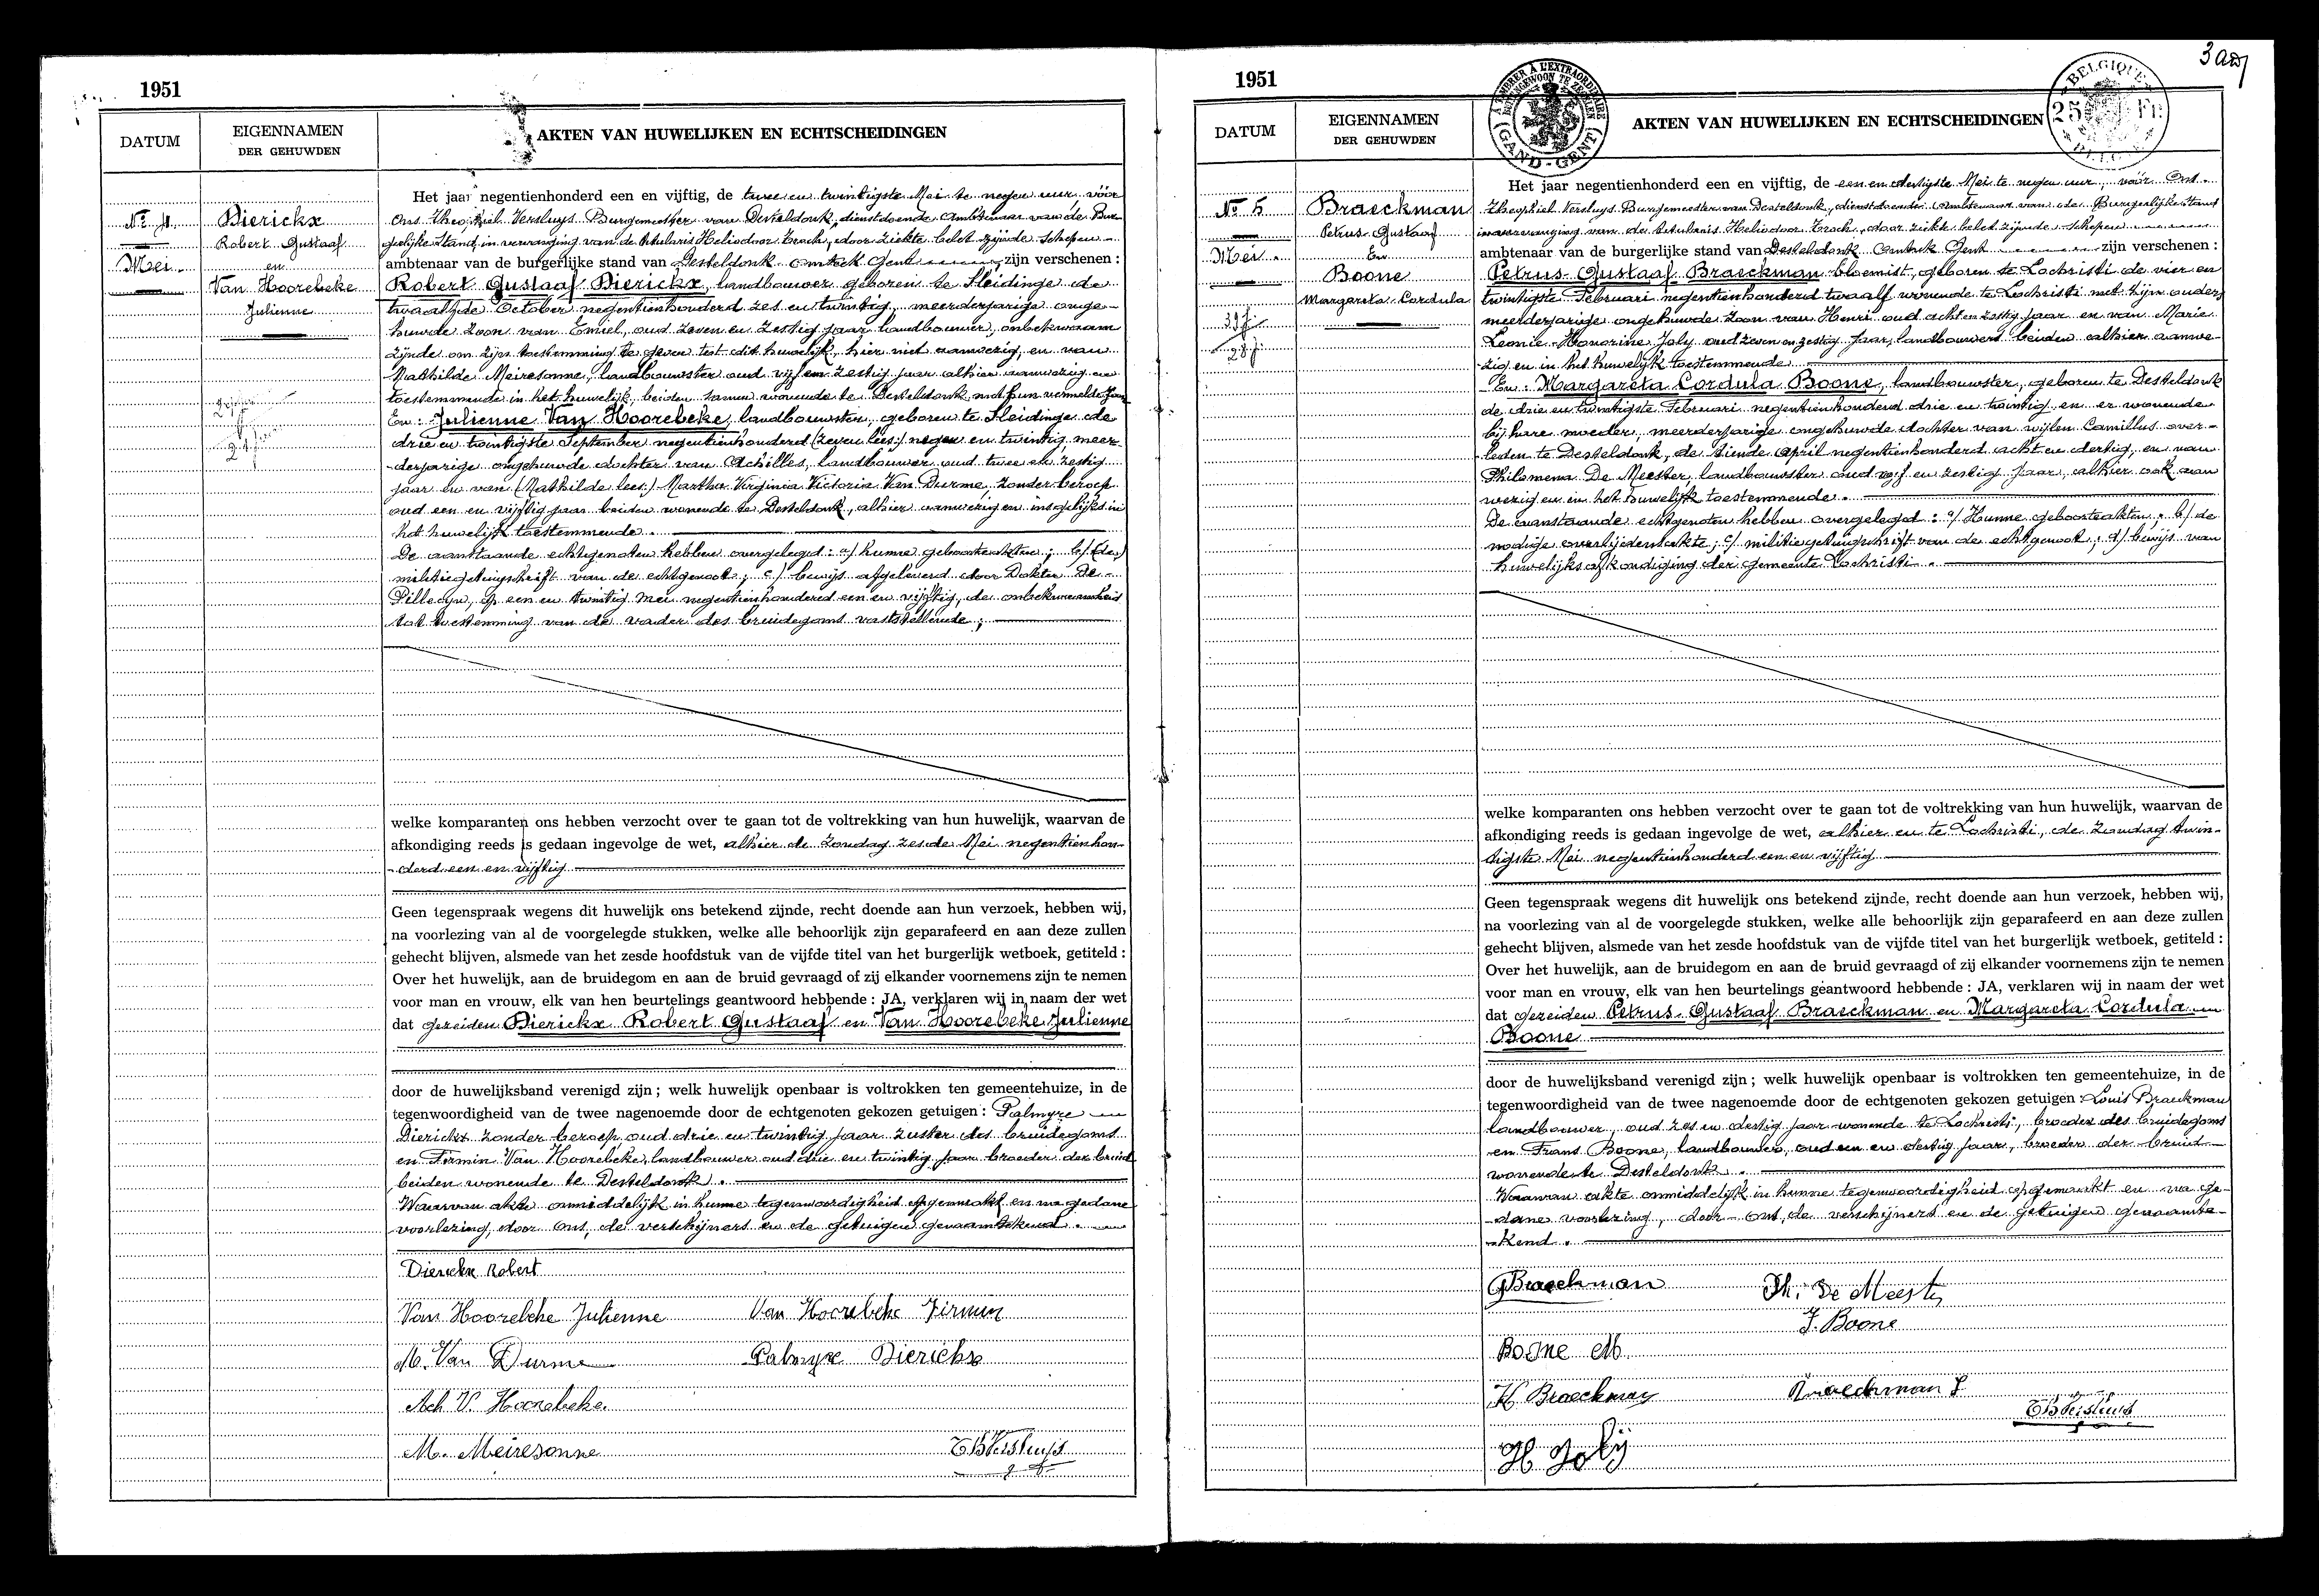 1951
DATUM
EIGENNAMEN
DER GEHUWDEN
AKTEN VAN HUWELIJKEN EN ECHTSCHEIDINGEN
No 4
Mei
Dierickx
Robert Gustaaf
en
Van Hoorebeke
Julienne
Het jaar negentienhonderd een en vijftig, de twee en twintigste Mei te negen uur, vóór
Ons Theophiel Versluys Burgemeester van Desteldonk, dienstdoende Ambtenaar van de Bur-
gerlijke Stand, in vervanging van de titularis Heliodoor Troch, door ziekte belet zijnde Schepen
ambtenaar van de burgerlijke stand van Desteldonk Omtrek Gent zijn verschenen :
Robert Gustaaf Dierickx, landbouwer geboren te Sleidinge de
twaalfde October negentienhonderd zes en twintig, meerderjarige onge-
huwde zoon van Emiel, oud zeven en zestig jaar landbouwer, onbekwaam
zijnde om zijn toestemming te geven tot dit huwelijk, hier niet aanwezig, en van
Mathilde Meiresonne, landbouwster oud vijf en zestig jaar alhier aanwezig en
toestemmende in het huwelijk, beiden samen wonende te Desteldonk met hun vermelde zoon
En : Julienne Van Hoorebeke, landbouwster, geboren te Sleidinge de
drie en twintigste September negentienhonderd (zeven lees:) negen en twintig, meer-
derjarige ongehuwde dochter van Achilles, landbouwer oud twee en zestig
jaar en van (Mathilde lees:) Martha Virginia Victoria Van Durme, zonder beroep
oud een en vijftig jaar beiden wonende te Desteldonk, alhier aanwezig en insgelijks in
het huwelijk toestemmende.
De aanstaande echtgenoten hebben overgelegd: a/ hunne geboorteakten; b/ (de)
militiegetuigschrift van de echtgenoot; c/ bewijs afgeleverd door Dokter De
Pillecyn, op een en twintig mei negentienhonderd een en vijftig, de onbekwaamheid
tot toestemming van de vader des bruidegoms vaststellende;
welke komparanten ons hebben verzocht over te gaan tot de voltrekking van hun huwelijk, waarvan de
afkondiging reeds is gedaan ingevolge de wet, alhier de Zondag zesde Mei negentienhon-
derd een en vijftig
Geen tegenspraak wegens dit huwelijk ons betekend zijnde, recht doende aan hun verzoek, hebben wij,
na voorlezing van al de voorgelegde stukken, welke alle behoorlijk zijn geparafeerd en aan deze zullen
gehecht blijven, alsmede van het zesde hoofdstuk van de vijfde titel van het burgerlijk wetboek, getiteld :
Over het huwelijk, aan de bruidegom en aan de bruid gevraagd of zij elkander voornemens zijn te nemen
voor man en vrouw, elk van hen beurtelings geantwoord hebbende : JA, verklaren wij in naam der wet
dat gezeiden Dierickx Robert Gustaaf en Van Hoorebeke Julienne
door de huwelijksband verenigd zijn ; welk huwelijk openbaar is voltrokken ten gemeentehuize, in de
tegenwoordigheid van de twee nagenoemde door de echtgenoten gekozen getuigen : Palmyre
Dierickx zonder beroep, oud drie en twintig jaar zuster des bruidegoms
en Firmin Van Hoorebeke, landbouwer oud drie en twintig jaar broeder der bruid
beiden wonende te Desteldonk.
Waarvan akte onmiddelijk in hunne tegenwoordigheid opgemaakt en na gedane
voorlezing, door ons, de verschijners en de getuigen genaamtekend.
Dierickx Robert
Van Hoorebeke Julienne Van Hoorebeke Firmin
M. Van Durme Palmyre Dierickx
Ach V. Hoorebeke
M. Meiresonne ThVersluys
1951
3
A TIMBRER A L'EXTRAORDINAIRE
BUITENGEWOON TE ZEGELEN
GAND-GENT
BELGIQUE
25 Fr.
BELGIE
DATUM
EIGENNAMEN
DER GEHUWDEN
AKTEN VAN HUWELIJKEN EN ECHTSCHEIDINGEN
No 5
Mei
Braeckman
Petrus Gustaaf
En
Boone
Margareta Cordula
Het jaar negentienhonderd een en vijftig, de een en dertigste Mei te negen uur, vóór Ons
Theophiel Versluys Burgemeester van Desteldonk, dienstdoende Ambtenaar van de Burgerlijke stand
in vervanging van de titularis Heliodoor Troch, door ziekte belet zijnde schepen
ambtenaar van de burgerlijke stand van Desteldonk Omtrek Gent zijn verschenen :
Petrus Gustaaf Braeckman bloemist, geboren te Lochristi de vier en
twintigste Februari negentienhonderd twaalf wonende te Lochristi met zijn ouders
meerderjarige ongehuwde zoon van Henri oud acht en zestig jaar en van Marie
Leonie Honorine Joly oud zeven en zestig jaar, landbouwers beiden alhier aanwe-
zig en in het huwelijk toestemmende
En : Margareta Cordula Boone, landbouwster, geboren te Desteldonk
de drie en twintigste Februari negentienhonderd drie en twintig, en er wonende
bij hare moeder, meerderjarige ongehuwde dochter van wijlen Camillus over-
leden te Desteldonk, de tiende April negentienhonderd acht en dertig, en van
Philomena De Meester, landbouwster oud vijf en zestig jaar, alhier ook aan
wezig en in het huwelijk toestemmende.
De aanstaande echtgenoten hebben overgelegd : a/ Hunne geboorteakten; b/ de
nodige overlijdensakte; c/ militiegetuigschrift van de echtgenoot; d/ bewijs van
huwelijksafkondiging der gemeente Lochristi.
welke komparanten ons hebben verzocht over te gaan tot de voltrekking van hun huwelijk, waarvan de
afkondiging reeds is gedaan ingevolge de wet, alhier en te Lochristi, de Zondag twin-
tigste Mei negentienhonderd een en vijftig
Geen tegenspraak wegens dit huwelijk ons betekend zijnde, recht doende aan hun verzoek, hebben wij,
na voorlezing van al de voorgelegde stukken, welke alle behoorlijk zijn geparafeerd en aan deze zullen
gehecht blijven, alsmede van het zesde hoofdstuk van de vijfde titel van het burgerlijk wetboek, getiteld :
Over het huwelijk, aan de bruidegom en aan de bruid gevraagd of zij elkander voornemens zijn te nemen
voor man en vrouw, elk van hen beurtelings geantwoord hebbende : JA, verklaren wij in naam der wet
dat gezeiden Petrus Gustaaf Braeckman en Margareta Cordula
Boone
door de huwelijksband verenigd zijn ; welk huwelijk openbaar is voltrokken ten gemeentehuize, in de
tegenwoordigheid van de twee nagenoemde door de echtgenoten gekozen getuigen : Louis Braeckman
landbouwer, oud zes en dertig jaar wonende te Lochristi, broeder des bruidegoms
en Frans Boone, landbouwer, oud een en dertig jaar, broeder der bruid
wonende te Desteldonk.
Waarvan akte onmiddelijk in hunne tegenwoordigheid opgemaakt en na ge-
dane voorlezing, door ons, de verschijners en de getuigen genaamte-
kend.
G Braeckman Ph. De Meester
F. Boone
Boone M
H. Braeckman Braeckman L
ThVersluys
H Joly